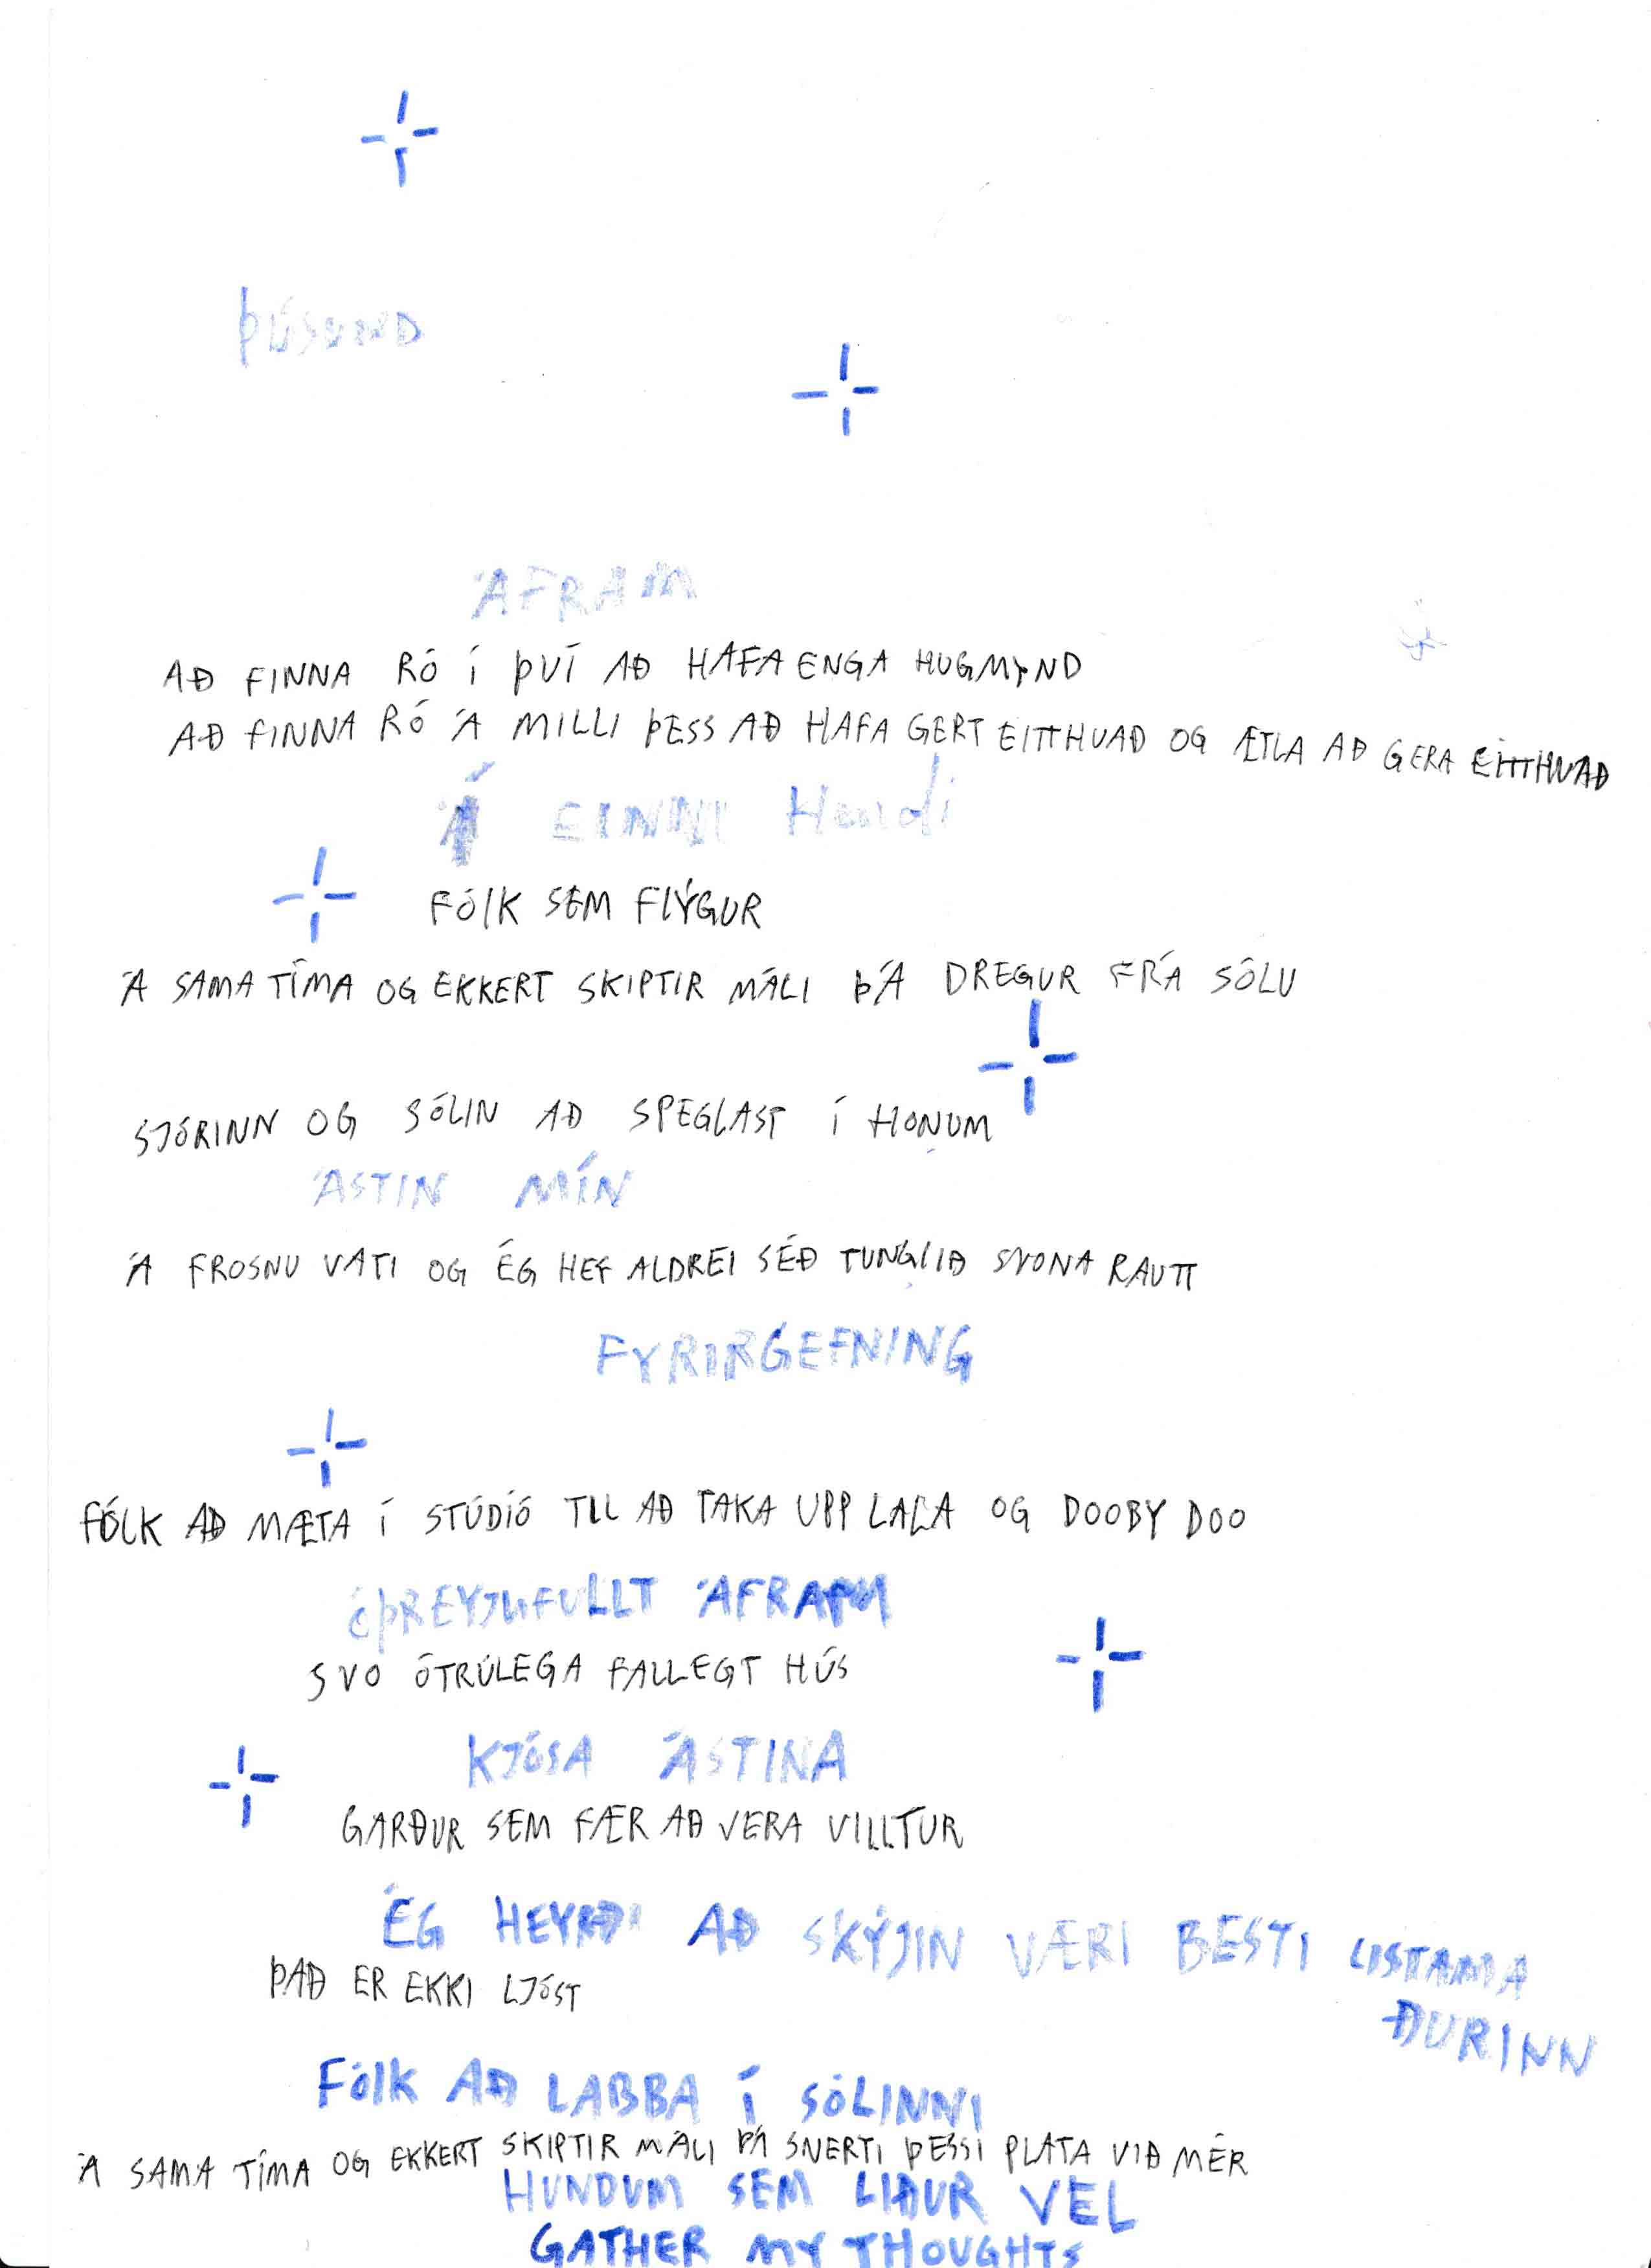 ÞÚSUND
ÁFRAM
AÐ FINNA RÓ Í ÞVÍ AÐ HAFA ENGA HUGMYND
AÐ FINNA RÓ Á MILLI ÞESS AÐ HAFA GERT EITTHVAÐ OG ÆTLA AÐ GERA EITTHVAÐ
Á EINNI Hendi
FÓLK SEM FLÝGUR
Á SAMA TÍMA OG EKKERT SKIPTIR MÁLI ÞÁ DREGUR FRÁ SÓLU
SJÓRINN OG SÓLIN AÐ SPEGLAST Í HONUM
ÁSTIN MÍN
Á FROSNU VATI OG ÉG HEF ALDREI SÉÐ TUNGLIÐ SVONA RAUTT
FYRIRGEFNING
FÓLK AÐ MÆTA Í STÚDÍÓ TIL AÐ TAKA UPP LALA OG DOOBY DOO
ÓÞREYJUFULLT ÁFRAM
SVO ÓTRÚLEGA FALLEGT HÚS
KJÓSA ÁSTINA
GARÐUR SEM FÆR AÐ VERA VILLTUR
ÉG HEYRÐI AÐ SKÝJIN VÆRI BESTI LISTAMA
ÐURINN
ÞAÐ ER EKKI LJÓST
FÓLK AÐ LABBA Í SÓLINNI
Á SAMA TÍMA OG EKKERT SKIPTIR MÁLI ÞÁ SNERTI ÞESSI PLATA VIÐ MÉR
HUNDUM SEM LIÐUR VEL
GATHER MY THOUGHTS